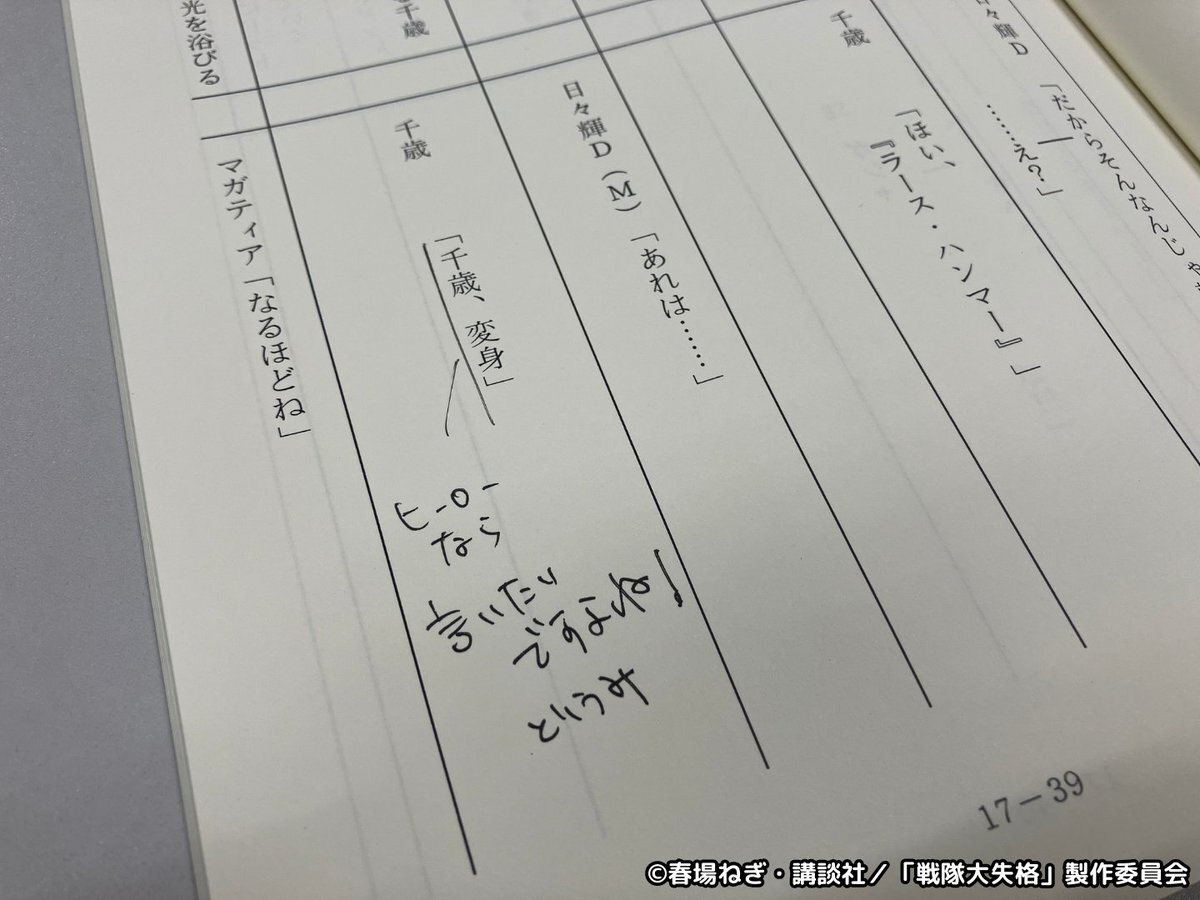 日々輝D「だからそんなんじゃ
……え?」
千歳「ほい、
『ラース・ハンマー』」
日々輝D(M)「あれは……」
千歳
千歳「千歳、変身」
光を浴びる
マガティア「なるほどね」
ヒーロー
なら
言いたい
ですよね!
どいうみ
17-39
©春場ねぎ・講談社/「戦隊大失格」製作委員会